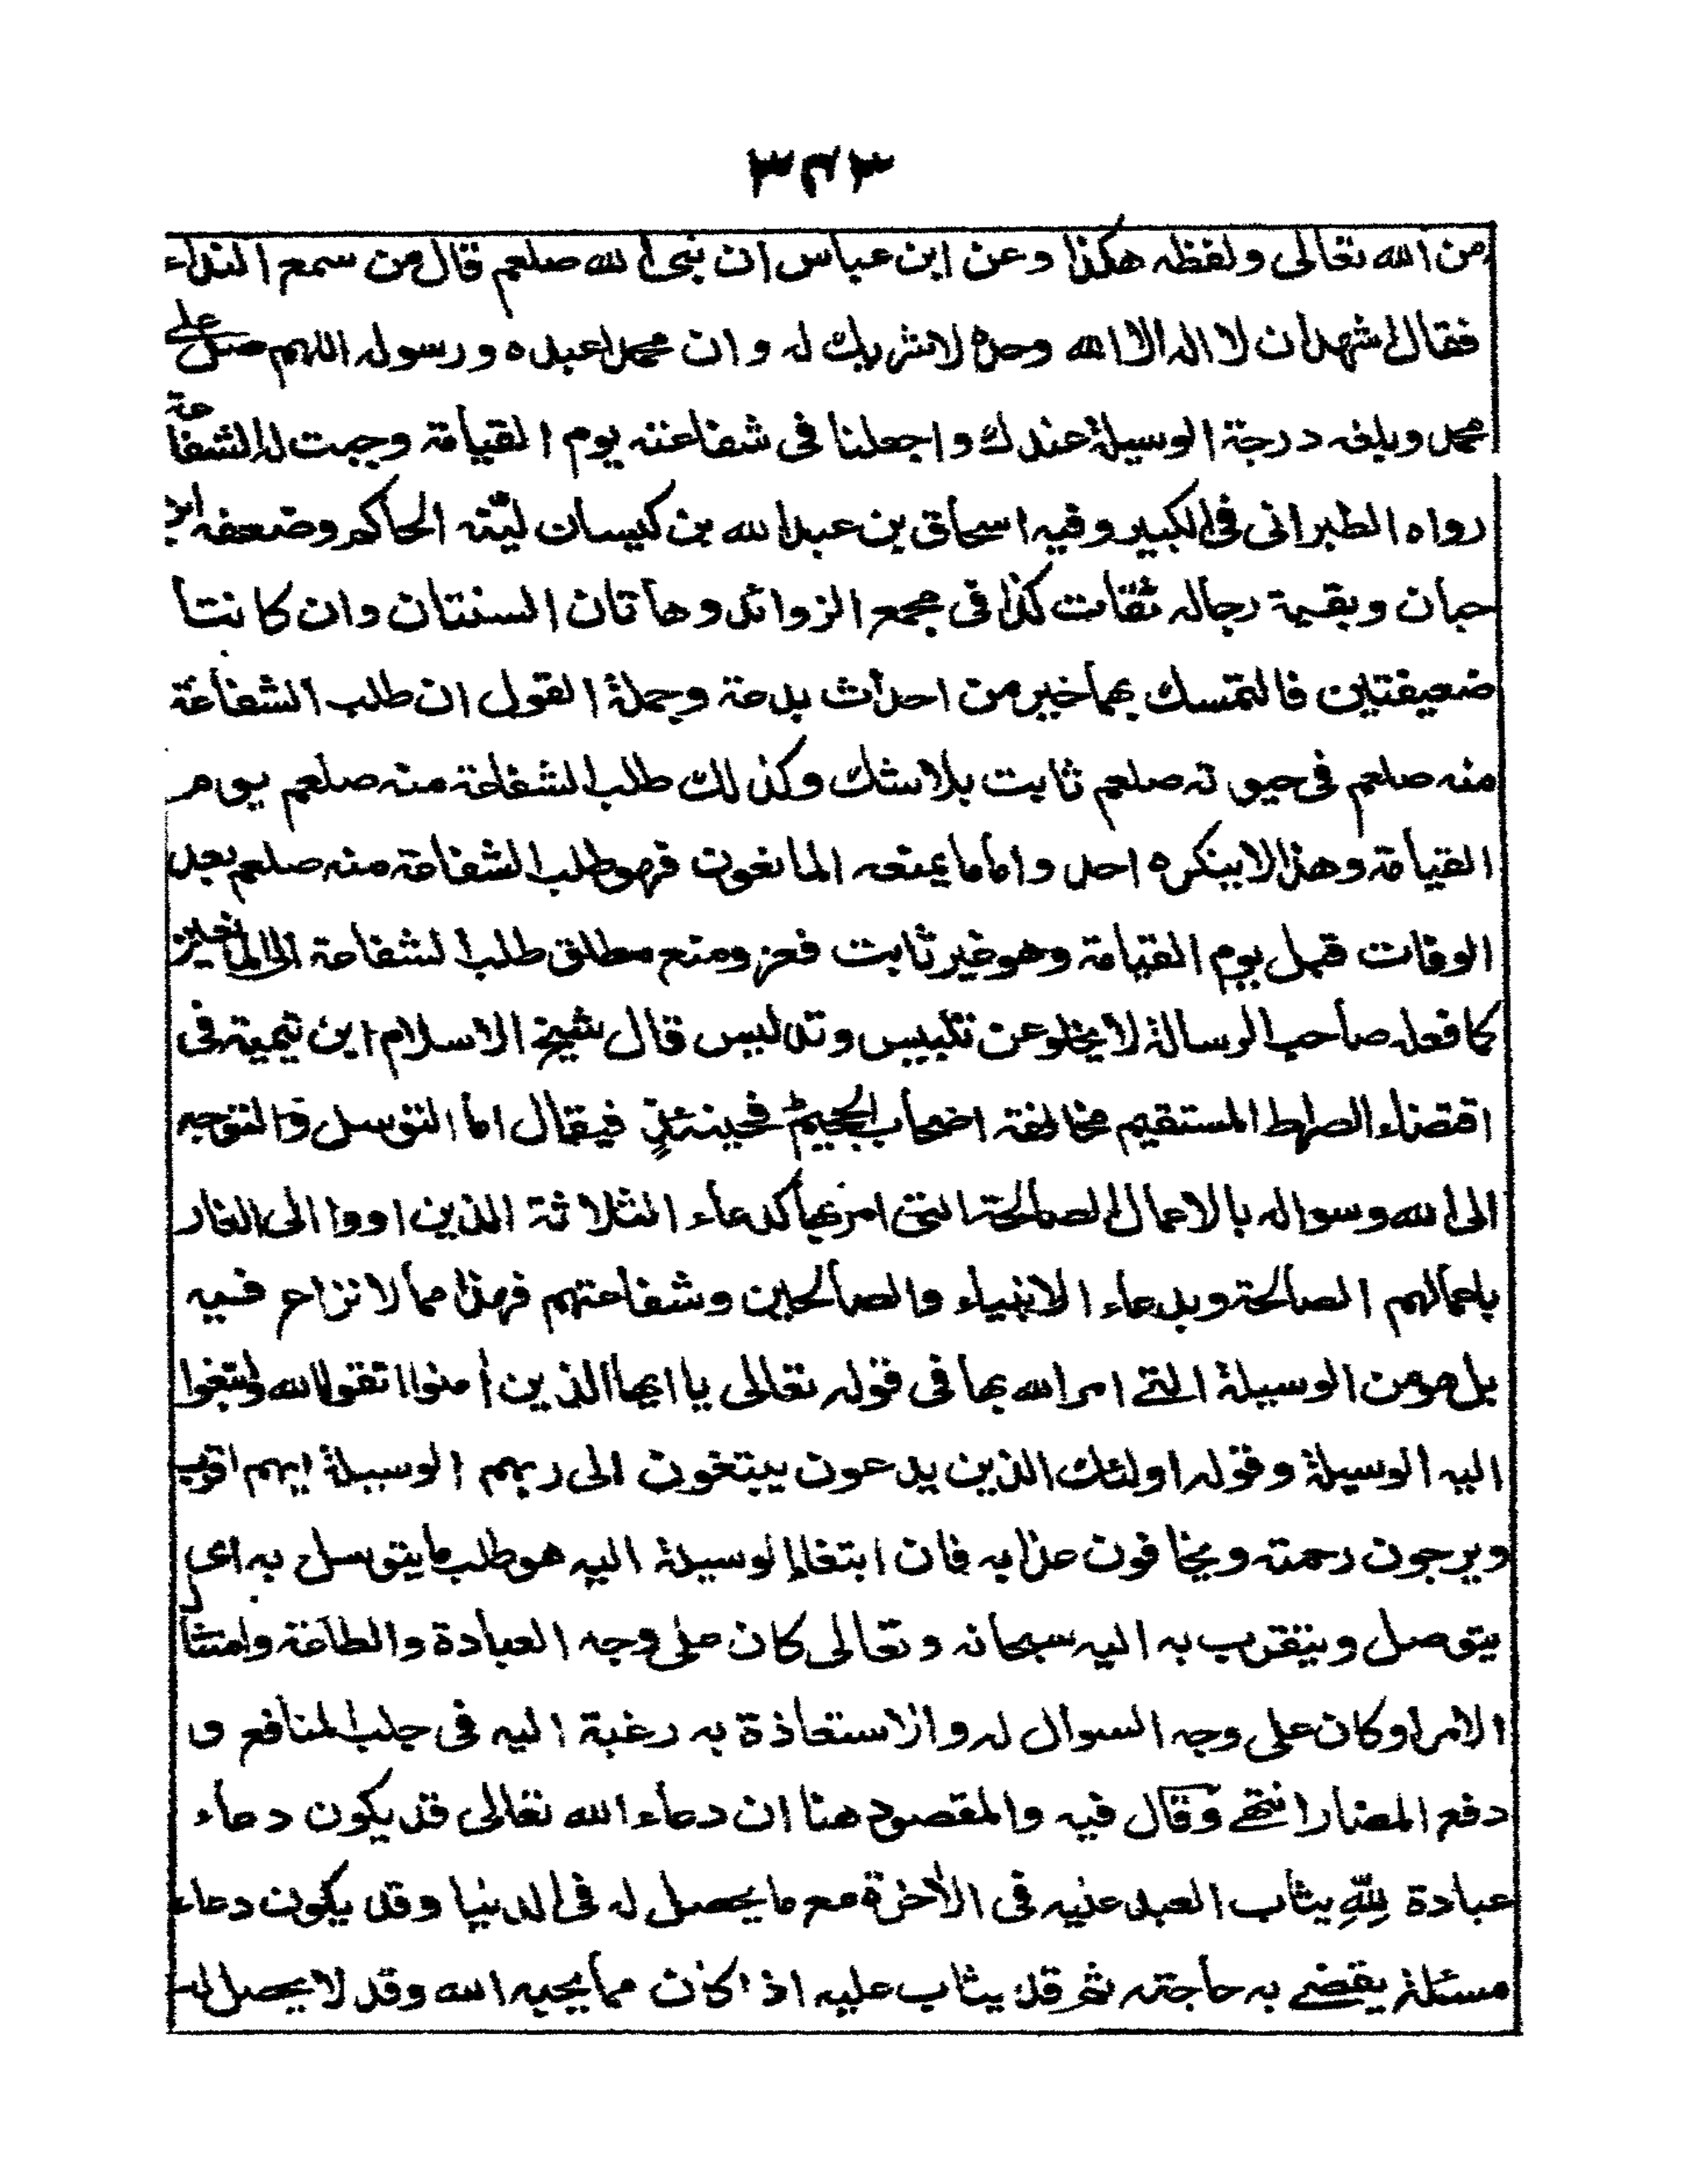 ٣٤٣
من الله تعالى ولفظه هكذا وعن ابن عباس ان نبى الله صلعم قال من سمع النداء
فقال اشهد ان لا اله الا الله وحده لا شريك له وان محمدا عبده ورسوله اللهم صل على
محمد وبلغه درجة الوسيلة عندك واجعلنا فى شفاعته يوم القيامة وجبت له الشفاعة
رواه الطبرانى فى الكبير وفيه اسحاق بن عبد الله بن كيسان لينه الحاكم وضعفه ابن
حبان وبقية رجاله ثقات كذا فى مجمع الزوائد وهاتان السنتان وان كانتا
ضعيفتين فالتمسك بهما خير من احداث بدعة وجملة القول ان طلب الشفاعة
منه صلعم فى حيوته صلعم ثابت بلا شك وكذلك طلب الشفاعة منه صلعم يوم
القيامة وهذا لا ينكره احد واما ما يمنعه المانعون فهو طلب الشفاعة منه صلعم بعد
الوفات قبل يوم القيامة وهو غير ثابت فعزو منع مطلق طلب الشفاعة الى المانعين
كما فعله صاحب الرسالة لا يخلو عن تلبيس وتدليس قال شيخ الاسلام ابن تيمية فى
اقتضاء الصراط المستقيم مخالفة اصحاب الجحيم فحينئذٍ فيقال اما التوسل والتوجه
الى الله وسواله بالاعمال الصالحة التى امر بها كدعاء الثلاثة الذين اووا الى الغار
باعمالهم الصالحة وبدعاء الانبياء والصالحين وشفاعتهم فهذا مما لا نزاع فيه
بل هو من الوسيلة التے امر الله بها فى قوله تعالى يا ايها الذين أمنوا اتقوا الله وابتغوا
اليه الوسيلة وقوله اولئك الذين يدعون يبتغون الى ربهم الوسيلة ايهم اقرب
ويرجون رحمته ويخافون عذابه فان ابتغاء الوسيلة اليه هو طلب ما يتوسل به اى
يتوصل ويتقرب به اليه سبحانه وتعالى كان على وجه العبادة والطاعة وامتثال
الامر او كان على وجه السوال له والاستعاذة به رغبة اليه فى جلب المنافع و
دفع المضار انتهے وقال فيه والمقصود هنا ان دعاء الله تعالى قد يكون دعاء
عبادة لِلّٰهِ يثاب العبد عليه فى الأخرة مع ما يحصل له فى الدنيا وقد يكون دعاء
مسئلة يقضے به حاجته ثم قد يثاب عليه اذا كان مما يحبه الله وقد لا يحصل له